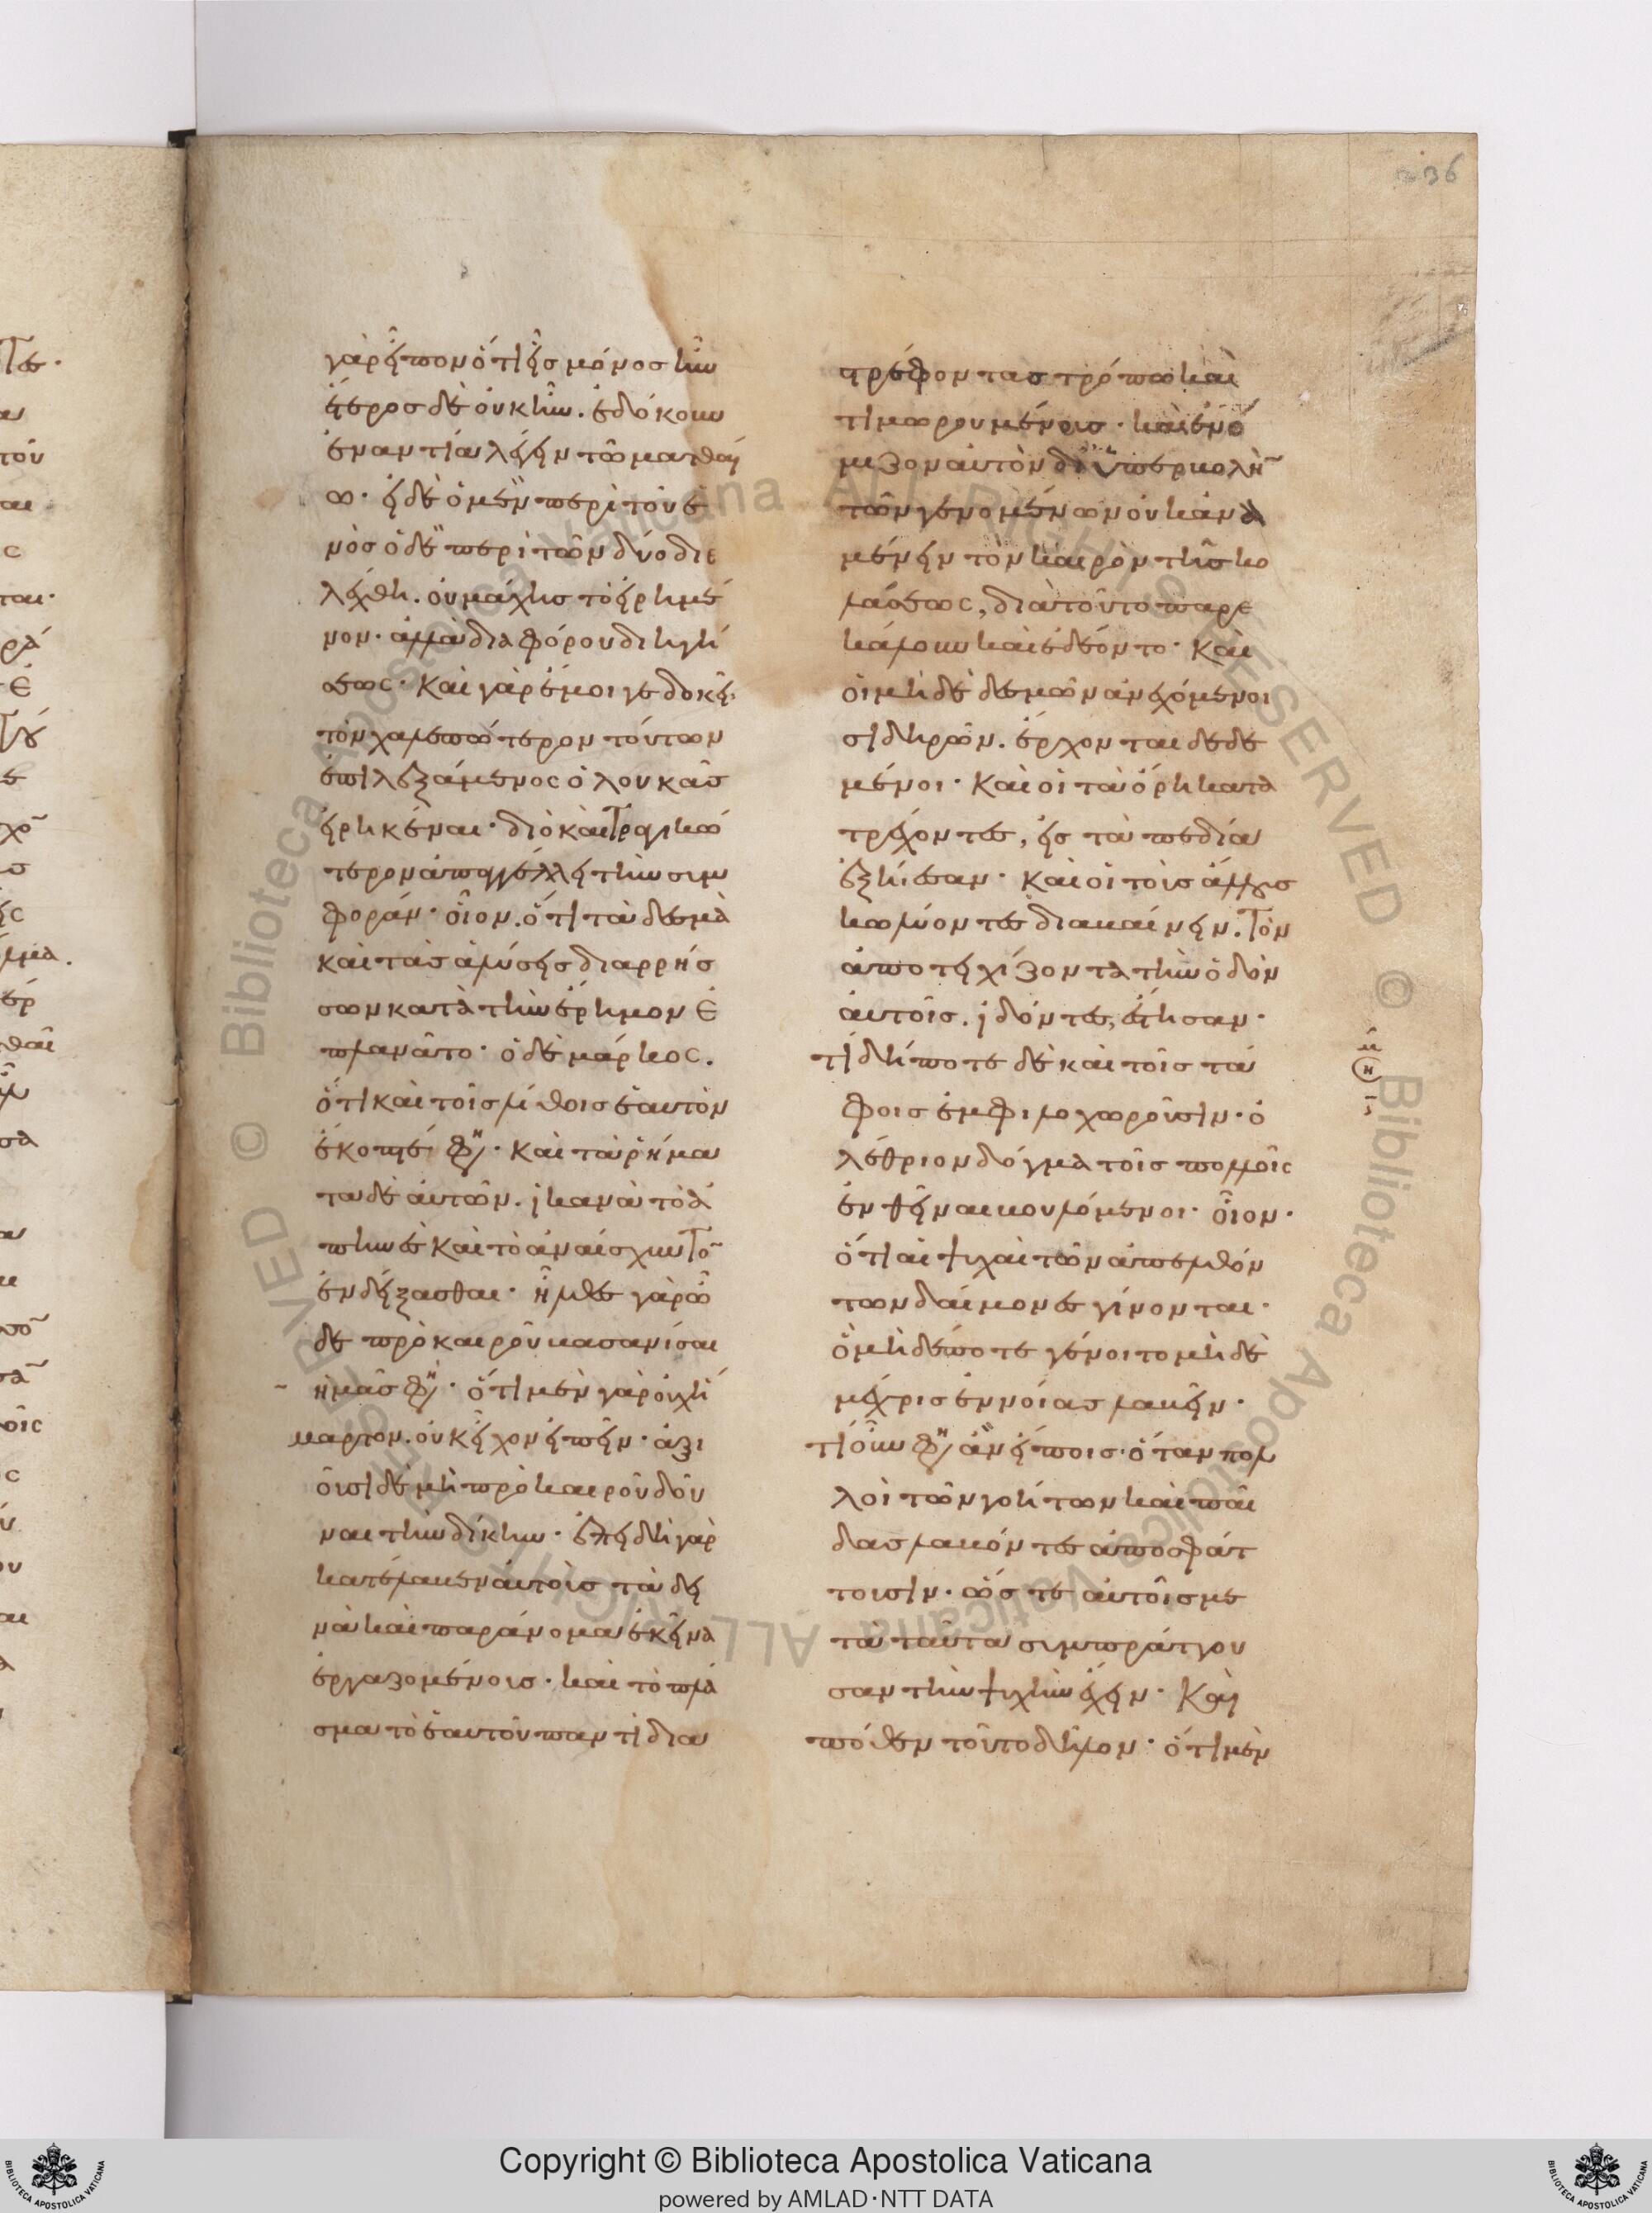 36
γὰρ εἶπον ὅτι εἷσ μόνοσ ἦν
ἕτεροσ δὲ οὐκ ἦν. ἐδόκουν
ἐναντία λέγειν τῶ ματθαί
ω· εἰ δὲ ὁ μὲν περὶ τοῦ ἑ
νὸσ ὁ δὲ περὶ τῶν δύο διε
λέχθη. οὐ μάχησ τὸ εἰρημέ
νον· ἀλλὰ διαφόρου διηγή
σεως· Καὶ γὰρ ἔμοιγε δοκεῖ·
τὸν χαλεπώτερον τούτων
ἐπιλεξάμενος ὁ λουκᾶσ
εἰρηκέναι· διὸ καὶ τραγικώ
τερον ἀπαγγέλλει τὴν συμ
φοράν· οἷον. ὅτι τὰ δεσμὰ
καὶ τὰσ ἁλύσεισ διαρρήσ
σων κατὰ τὴν ἔρημον ἐ
πλανᾶτο· ὁ δὲ μάρκος.
ὅτι καὶ τοῖσ λίθοισ ἑαυτὸν
ἔκοπτέ φη· Καὶ τὰ ῥήμα
τα δὲ αὐτῶν. ἱκανὰ τὸ ἀ
πηνὲσ καὶ τὸ ἀναίσχυντον
ἐνδείξασθαι· ἦλθεσ γὰρ ὧ
δε πρὸ καιροῦ βασανίσαι
ἡμᾶσ φη· ὅτι μὲν γὰρ οὐχ ἥ
μαρτον. οὐκ εἶχον εἰπεῖν· ἀξι
οῦσι δὲ μὴ πρὸ καιροῦ δοῦ
ναι τὴν δίκην· ἐπειδὴ γὰρ
κατέλαβεν αὐτοὺσ τὰ δει
νὰ καὶ παράνομα ἐκεῖνα
ἐργαζομένουσ· καὶ τὸ πλά
σμα τὸ ἑαυτοῦ παντὶ δια
στρέφοντασ τρόπω καὶ
τιμωρουμένουσ· καὶ ἐνό
μιζον αὐτὸν δι ὑπερβολὴν
τῶν γενομένων οὐκ ἀνα
μένειν τὸν καιρὸν τῆσ κο
λάσεως, διὰ τοῦτο παρε
κάλουν καὶ ἐδέοντο· Καὶ
οἱ μηδὲ δεσμῶν ἀνεχόμενοι
σιδηρῶν. ἔρχονται δεδε
μένοι· Καὶ οἱ τὰ ὄρη κατα
τρέχοντεσ, εἰσ τὰ πεδία
ἐξήεσαν· Καὶ οἱ τοὺσ ἄλλουσ
κωλύοντεσ διαβαίνειν. Τὸν
ἀποτειχίζοντα τὴν ὁδὸν
αὐτοῖσ. ἰδόντεσ, ἔστησαν·
τί δήποτε δὲ καὶ τοῖσ τά
φοισ ἐμφιλοχωροῦσιν· ὀ
λέθριον δόγμα τοῖσ πολλοῖς
ἐνθεῖναι βουλόμενοι· οἷον·
ὅτι αἱ ψυχαὶ τῶν ἀπελθόν
των δαίμονεσ γίνονται·
ὃ μηδέποτε γένοιτο μηδὲ
μέχρισ ἐννοίασ λαβεῖν·
τί οὖν φη ἂν εἴποισ· ὅταν πολ
λοὶ τῶν γοήτων καὶ παῖ
δασ λαβόντεσ ἀποσφάτ
τουσιν· ὥστε αὐτοῖσ με
τὰ ταῦτα συμπράττου
σαν τὴν ψυχὴν ἔχειν· Καὶ
πόθεν τοῦτο δῆλον· ὅτι μὲν
Copyright © Biblioteca Apostolica Vaticana
powered by AMLAD·NTT DATA